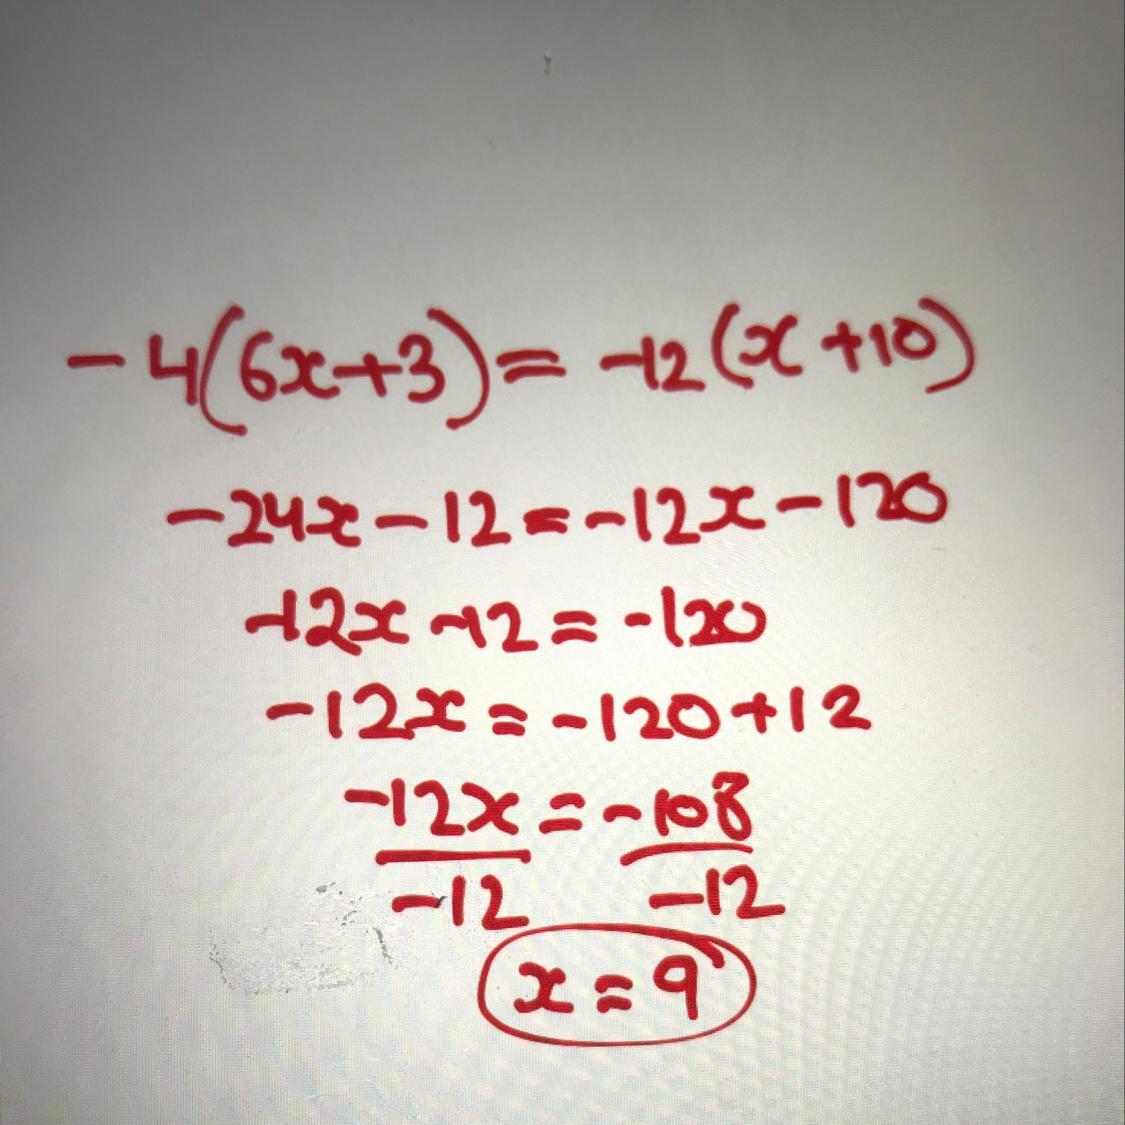 -4(6x+3)= -12(x+10)
-24x-12=-12x-120
-12x-12=-120
-12x=-120+12
-12x=-108
-12 -12
x=9